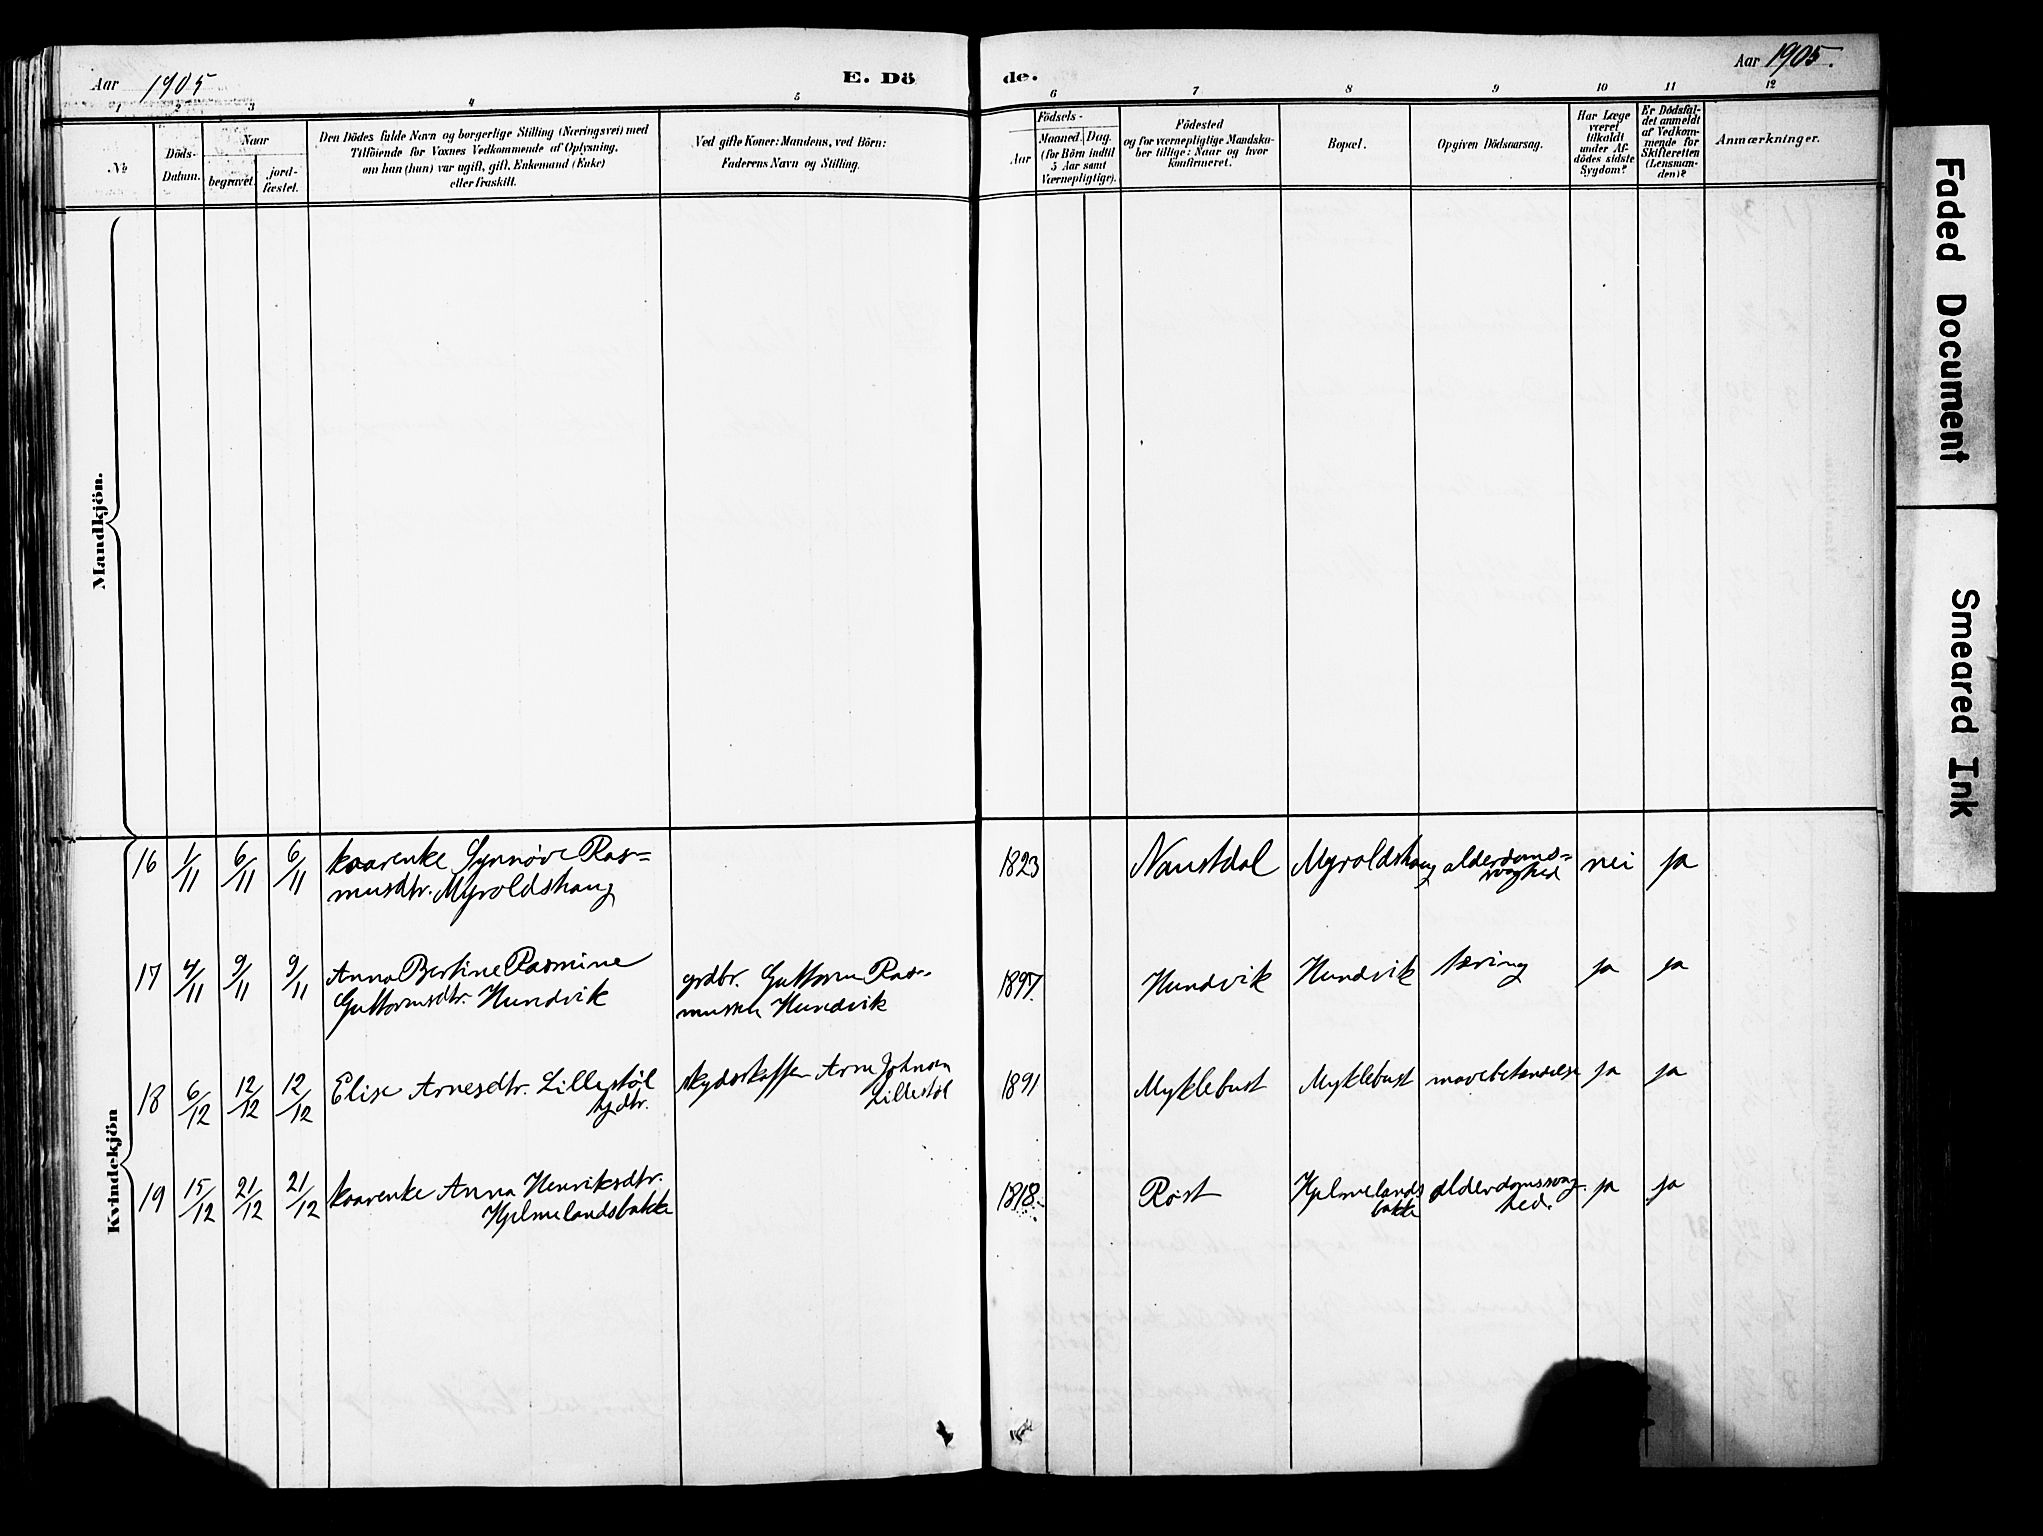 Aar 1905
E. Dö
de.
Aar 1905.
1 2 3 4 5 6 7 8 9 10 11 12
No
Döds-
Datum.
Naar
begravet.
jord-
fæstet.
Den Dödes fulde Navn og borgerlige Stilling (Næringsvei) med
Tilföiende for Voxnes Vedkommende af Oplysning,
om han (hun) var ugift, gift, Enkemand (Enke)
eller fraskilt.
Ved gifte Koner: Mandens, ved Börn:
Faderens Navn og Stilling.
Födsels-
Aar
Maaned.
Dag.
(for Börn indtil
5 Aar samt
Værnepligtige).
Födested
og for værnepligtige Mandska-
ber tillige: Naar og hvor
konfirmeret.
Bopæl.
Opgiven Dödsaarsag.
Har Læge
været
tilkaldt
under Af-
dödes sidste
Sygdom?
Er Dödsfal-
det anmeldt
af Vedkom-
mende for
Skifteretten
(Lensman-
den)?
Anmærkninger.
Mandkjön.
Kvindekjön
16 1/11 6/11 6/11 kaarenke Synnøve Ras= 1823 Naustdal Myroldshaug alderdoms= nei ja
musdtr. Myroldshaug svaghed
17 4/11 9/11 9/11 Anna Bertine Rasmine grdbr. Guttorm Ras- 1897. Hundvik Hundvik tæring ja ja
Guttormsdtr. Hundvik mussen Hundvik
18 6/12 12/12 12/12 Elise Arnesdtr. Lillestøl skydsskaffer Arne Johnsen 1891 Myklebust Myklebust mavebetændelse ja ja
Lillestøl
19 15/12 21/12 21/12 kaarenke Anna Henriksdtr. 1818. Røst Hjelmelands alderdomssvag- ja ja
Hjelmelandsbakke bakke hed.
Faded Document
Smeared Ink